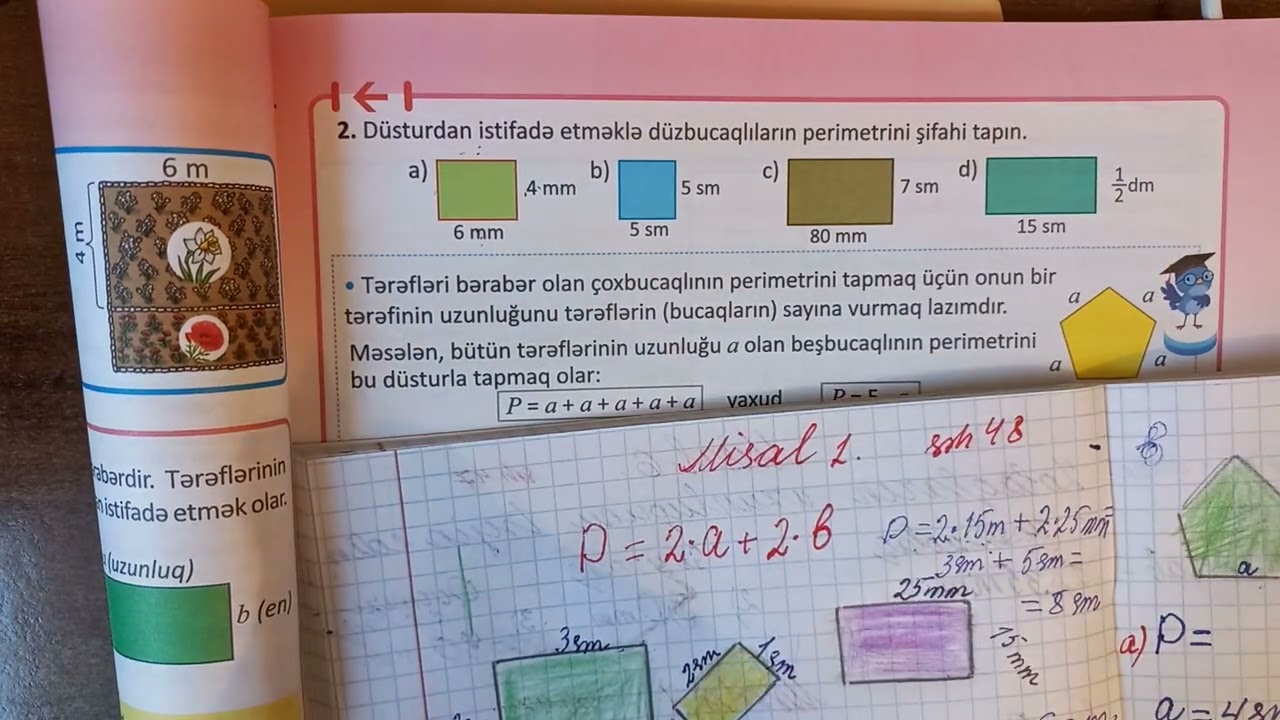 6 m
4 m
2. Düsturdan istifadə etməklə düzbucaqlıların perimetrini şifahi tapın.
a) 4 mm
6 mm
b) 5 sm
5 sm
c) 7 sm
80 mm
d) 1/2 dm
15 sm
• Tərəfləri bərabər olan çoxbucaqlının perimetrini tapmaq üçün onun bir
tərəfinin uzunluğunu tərəflərin (bucaqların) sayına vurmaq lazımdır.
Məsələn, bütün tərəflərinin uzunluğu a olan beşbucaqlının perimetrini
bu düsturla tapmaq olar:
a a
a a
P = a + a + a + a + a yaxud
abərdir. Tərəflərinin
istifadə etmək olar.
(uzunluq)
b (en)
Misal 1. səh 48
P = 2·a + 2·b
P = 2·15m + 2·25mm =
3sm + 5sm =
= 8sm
25mm
15mm
3sm
2sm 1sm
a
a) P =
a = 4sm